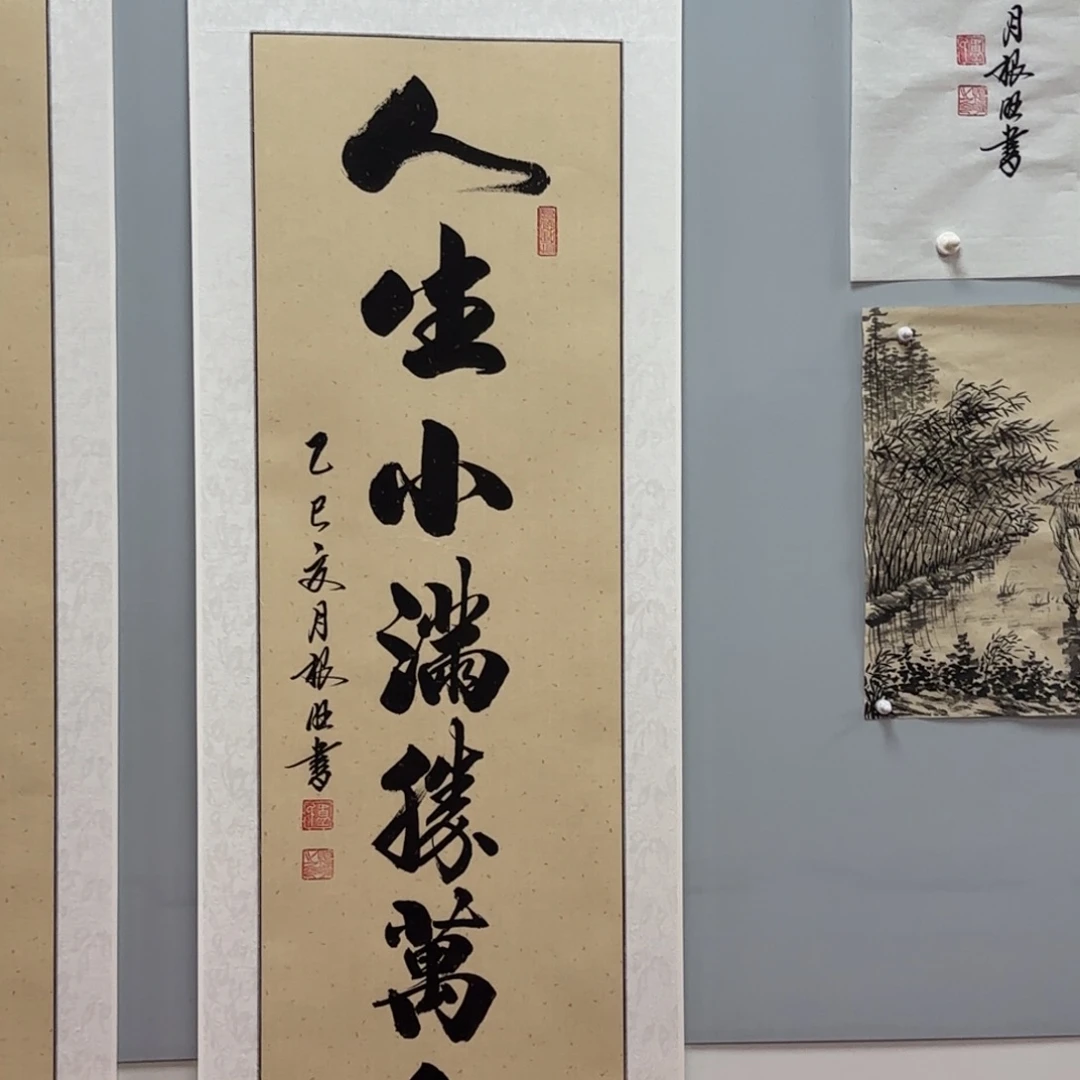 人生小滿勝萬
乙巳亥月根旺書
月根旺書